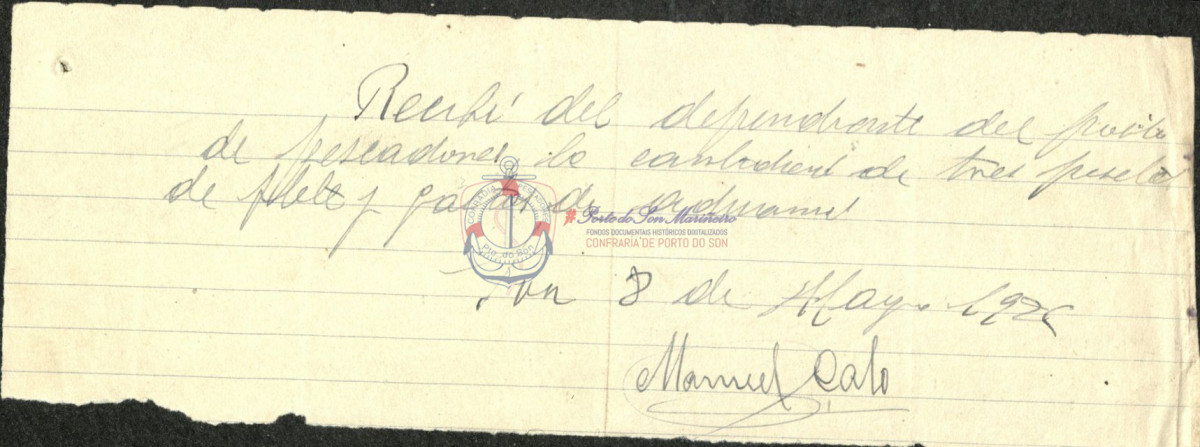 Recibí del dependiente del
de pescadores la cantidad de tres pesetas
de flete y gastos de
Son 8 de Mayo 192
Manuel Calo
COFRADÍA PESCADORES
Pto. do Son
#Porto do Son Mariñeiro
FONDOS DOCUMENTAIS HISTÓRICOS DIXITALIZADOS
CONFRARÍA DE PORTO DO SON